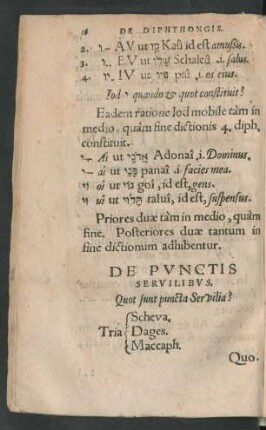 DE DIPHTHONGIS.
2. AV ut קו Kau id est amussis.
3. EV ut Schaleu .i. salus.
4. IV ut פיו piu .i. os eius.
Iod י quando & quot constituit?
Eadem ratione Iod mobile tàm in
medio, quàm fine dictionis 4. diph.
constituit.
Ai ut אדני Adonai, .i. Dominus.
ai ut פני panai .i. facies mea.
oi ut גוי goi, id est, gens.
ui ut תלוי talui, id est, suspensus.
Priores duæ tàm in medio, quàm
fine. Posteriores duæ tantum in
fine dictionum adhibentur.
DE PVNCTIS
SERVILIBVS.
Quot sunt puncta Servilia?
Scheva.
Tria Dages.
Maccaph.
Quo-